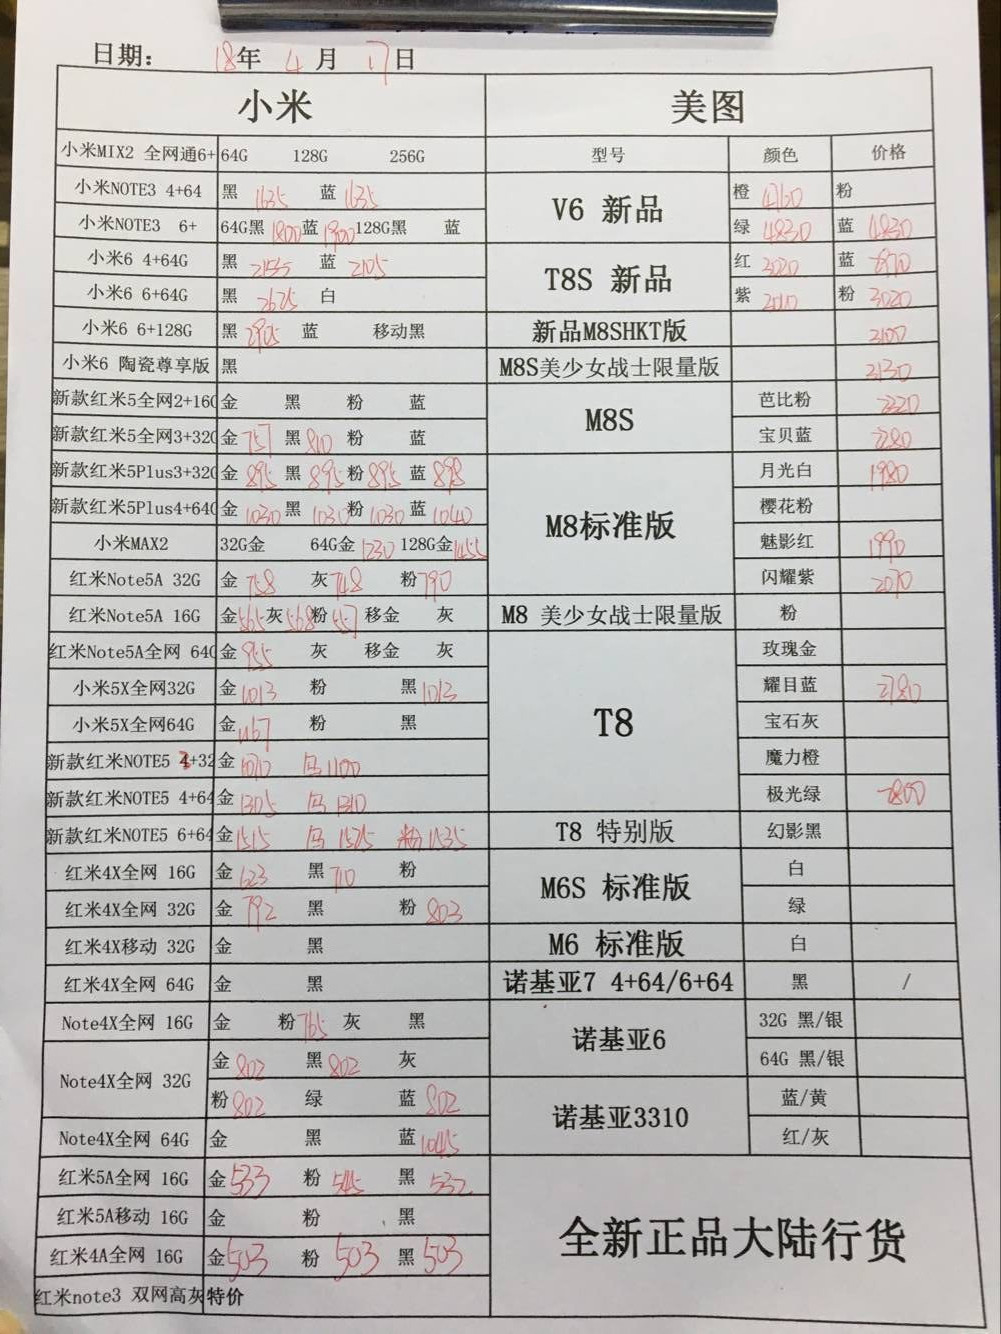 日期： 18年 4月 17日
小米 美图
小米MIX2 全网通6+ 64G 128G 256G 型号 颜色 价格
小米NOTE3 4+64 黑 1635 蓝 1635 V6 新品 橙 4760 粉
小米NOTE3 6+ 64G黑 1800 蓝 1900 128G黑 蓝 绿 4830 蓝 4830
小米6 4+64G 黑 蓝 2105 T8S 新品 红 蓝
小米6 6+64G 黑 2625 白 紫 粉 3020
小米6 6+128G 黑 2905 蓝 移动黑 新品M8SHKT版
小米6 陶瓷尊享版 黑 M8S美少女战士限量版
新款红米5全网2+16G 金 黑 粉 蓝 M8S 芭比粉
新款红米5全网3+32G 金 757 黑 810 粉 蓝 宝贝蓝
新款红米5Plus3+32G 金 895 黑 895 粉 895 蓝 898 M8标准版 月光白 1980
新款红米5Plus4+64G 金 1030 黑 1030 粉 1030 蓝 1040 樱花粉
小米MAX2 32G金 64G金 1230 128G金 1455 魅影红 1990
红米Note5A 32G 金 758 灰 748 粉 790 闪耀紫 2070
红米Note5A 16G 金 565 灰 568 粉 移金 灰 M8 美少女战士限量版 粉
红米Note5A全网 64G 金 955 灰 移金 灰 T8 玫瑰金
小米5X全网32G 金 1013 粉 黑 1013 耀目蓝
小米5X全网64G 金 1167 粉 黑 宝石灰
新款红米NOTE5 3+32 金 马 1100 魔力橙
新款红米NOTE5 4+64 金 1305 马 1310 极光绿
新款红米NOTE5 6+64 金 1515 马 1525 粉 1535 T8 特别版 幻影黑
红米4X全网 16G 金 623 黑 710 粉 M6S 标准版 白
红米4X全网 32G 金 792 黑 粉 803 绿
红米4X移动 32G 金 黑 M6 标准版 白
红米4X全网 64G 金 黑 诺基亚7 4+64/6+64 黑 /
Note4X全网 16G 金 粉 765 灰 黑 诺基亚6 32G 黑/银
Note4X全网 32G 金 802 黑 802 灰 64G 黑/银
粉 802 绿 蓝 802 诺基亚3310 蓝/黄
Note4X全网 64G 金 黑 蓝 1045 红/灰
红米5A全网 16G 金 533 粉 545 黑 532 全新正品大陆行货
红米5A移动 16G 金 粉 黑
红米4A全网 16G 金 503 粉 503 黑 503
红米note3 双网高灰特价